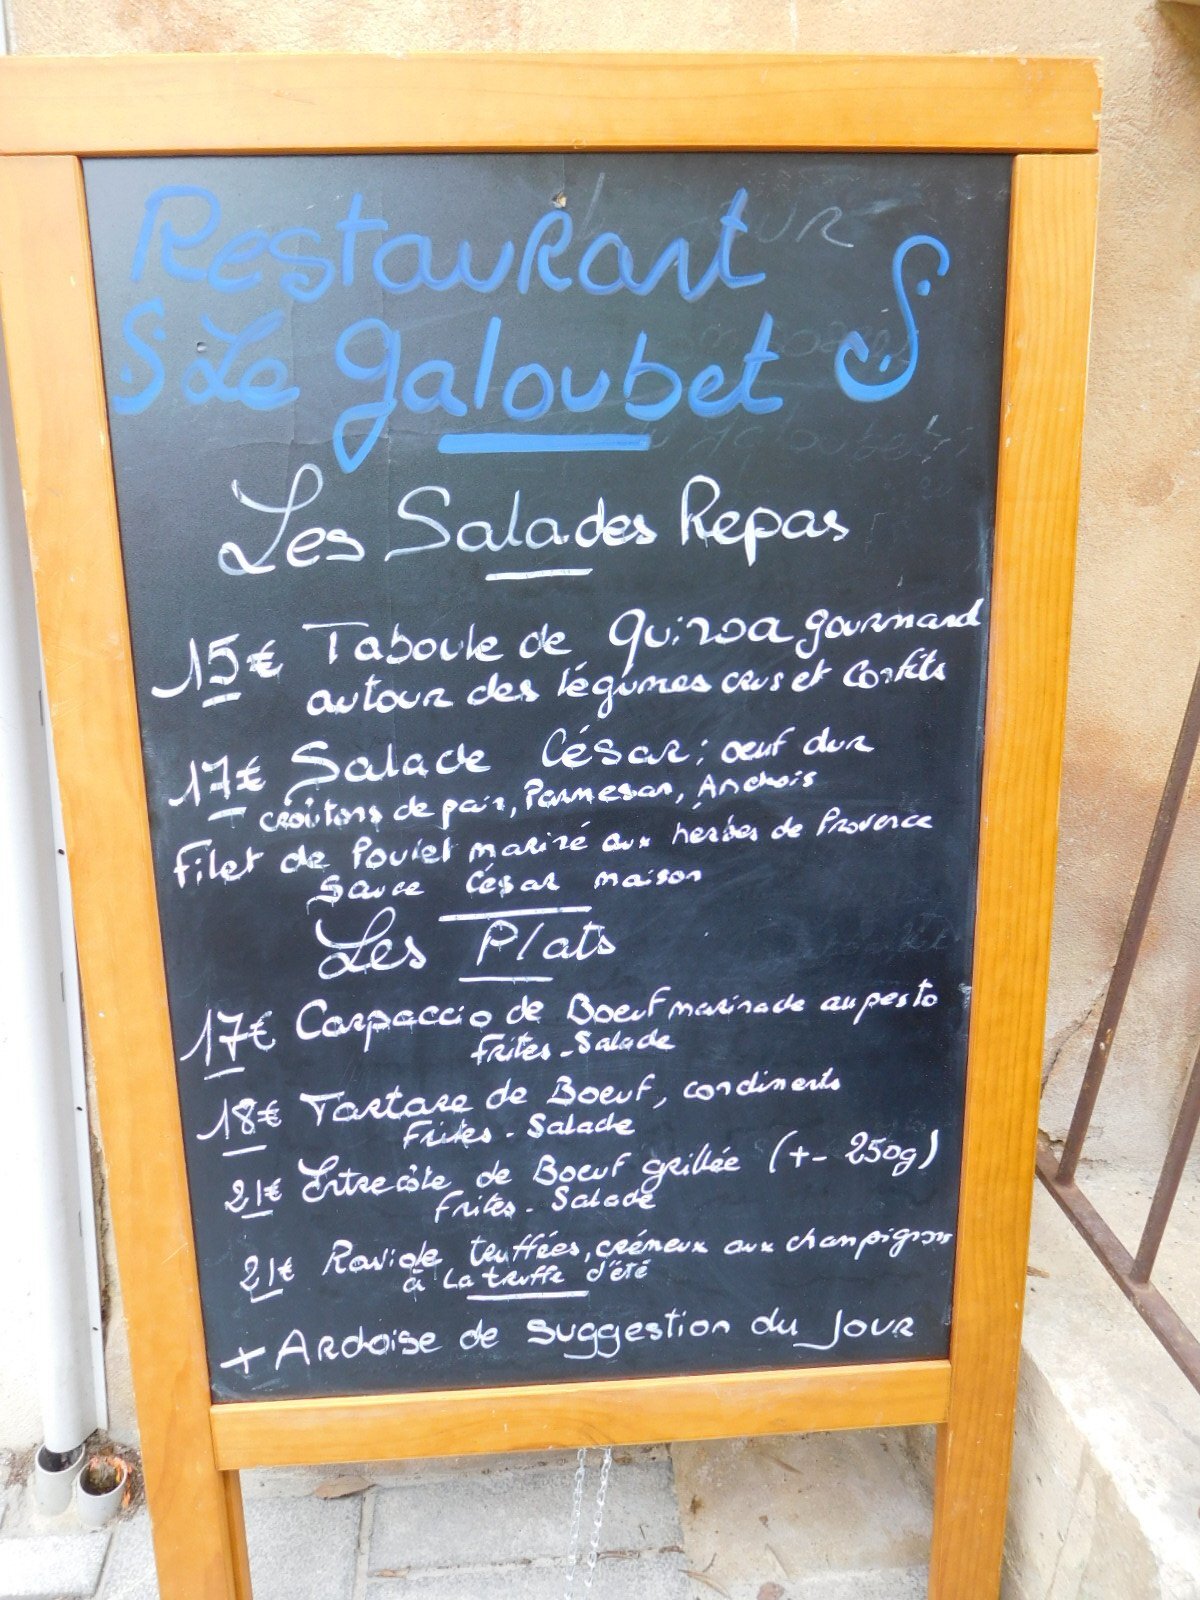 Restaurant
Le Galoubet
Les Salades Repas
15€ Taboule de Quinoa gourmand
autour des légumes crus et confits
17€ Salade César : oeuf dur
croûtons de pain, Parmesan, Anchois
Filet de Poulet mariné aux herbes de Provence
Sauce César maison
Les Plats
17€ Carpaccio de Boeuf marinade au pesto
Frites - Salade
18€ Tartare de Boeuf, condiments
Frites - Salade
21€ Entrecôte de Boeuf grillée (+- 250g)
Frites - Salade
21€ Raviole truffées, crémeux aux champignons
à la truffe d'été
+ Ardoise de Suggestion du Jour